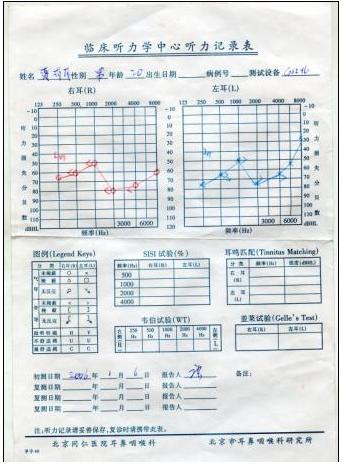 临床听力学中心听力记录表
姓名 性别 年龄 20 出生日期 病例号 测试设备
右耳(R) 左耳(L)
125 250 500 1000 2000 4000 8000 125 250 500 1000 2000 4000 8000
-10 -10
0 0
10 10
20 20
30 30
40 40
50 50
60 60
70 70
80 80
90 90
100 100
110 110
120 120
听力损失分贝数
听力损失分贝数
dBHL 3000 6000 3000 6000 dBHL
频率(Hz) 频率(Hz)
图例(Legend Keys) SISI 试验(%) 耳鸣匹配(Tinnitus Matching)
分类 右耳(R) 左耳(L) 频率(Hz) 右耳(R) 左耳(L) 分类 频率(Hz) 强度(dBHL)
未掩蔽 O × 500 右耳(R)
掩蔽 △ □ 1000 左耳(L)
无反应 2000
未掩蔽 < > 4000
掩蔽 [ ]
无反应
韦伯试验(WT) 盖莱试验(Gelle's Test)
右侧R 250 Hz 500 Hz 1000 Hz 2000 Hz 4000 Hz 左侧L 右耳(R) 左耳(L)
U U
C C
初测日期 2006 年 1 月 6 日 报告人 备注:
复测日期 年 月 日 报告人
复测日期 年 月 日 报告人
复测日期 年 月 日 报告人
注:听力记录请妥善保存,复诊时请携带此表。
北京同仁医院耳鼻咽喉科 北京市耳鼻咽喉科研究所